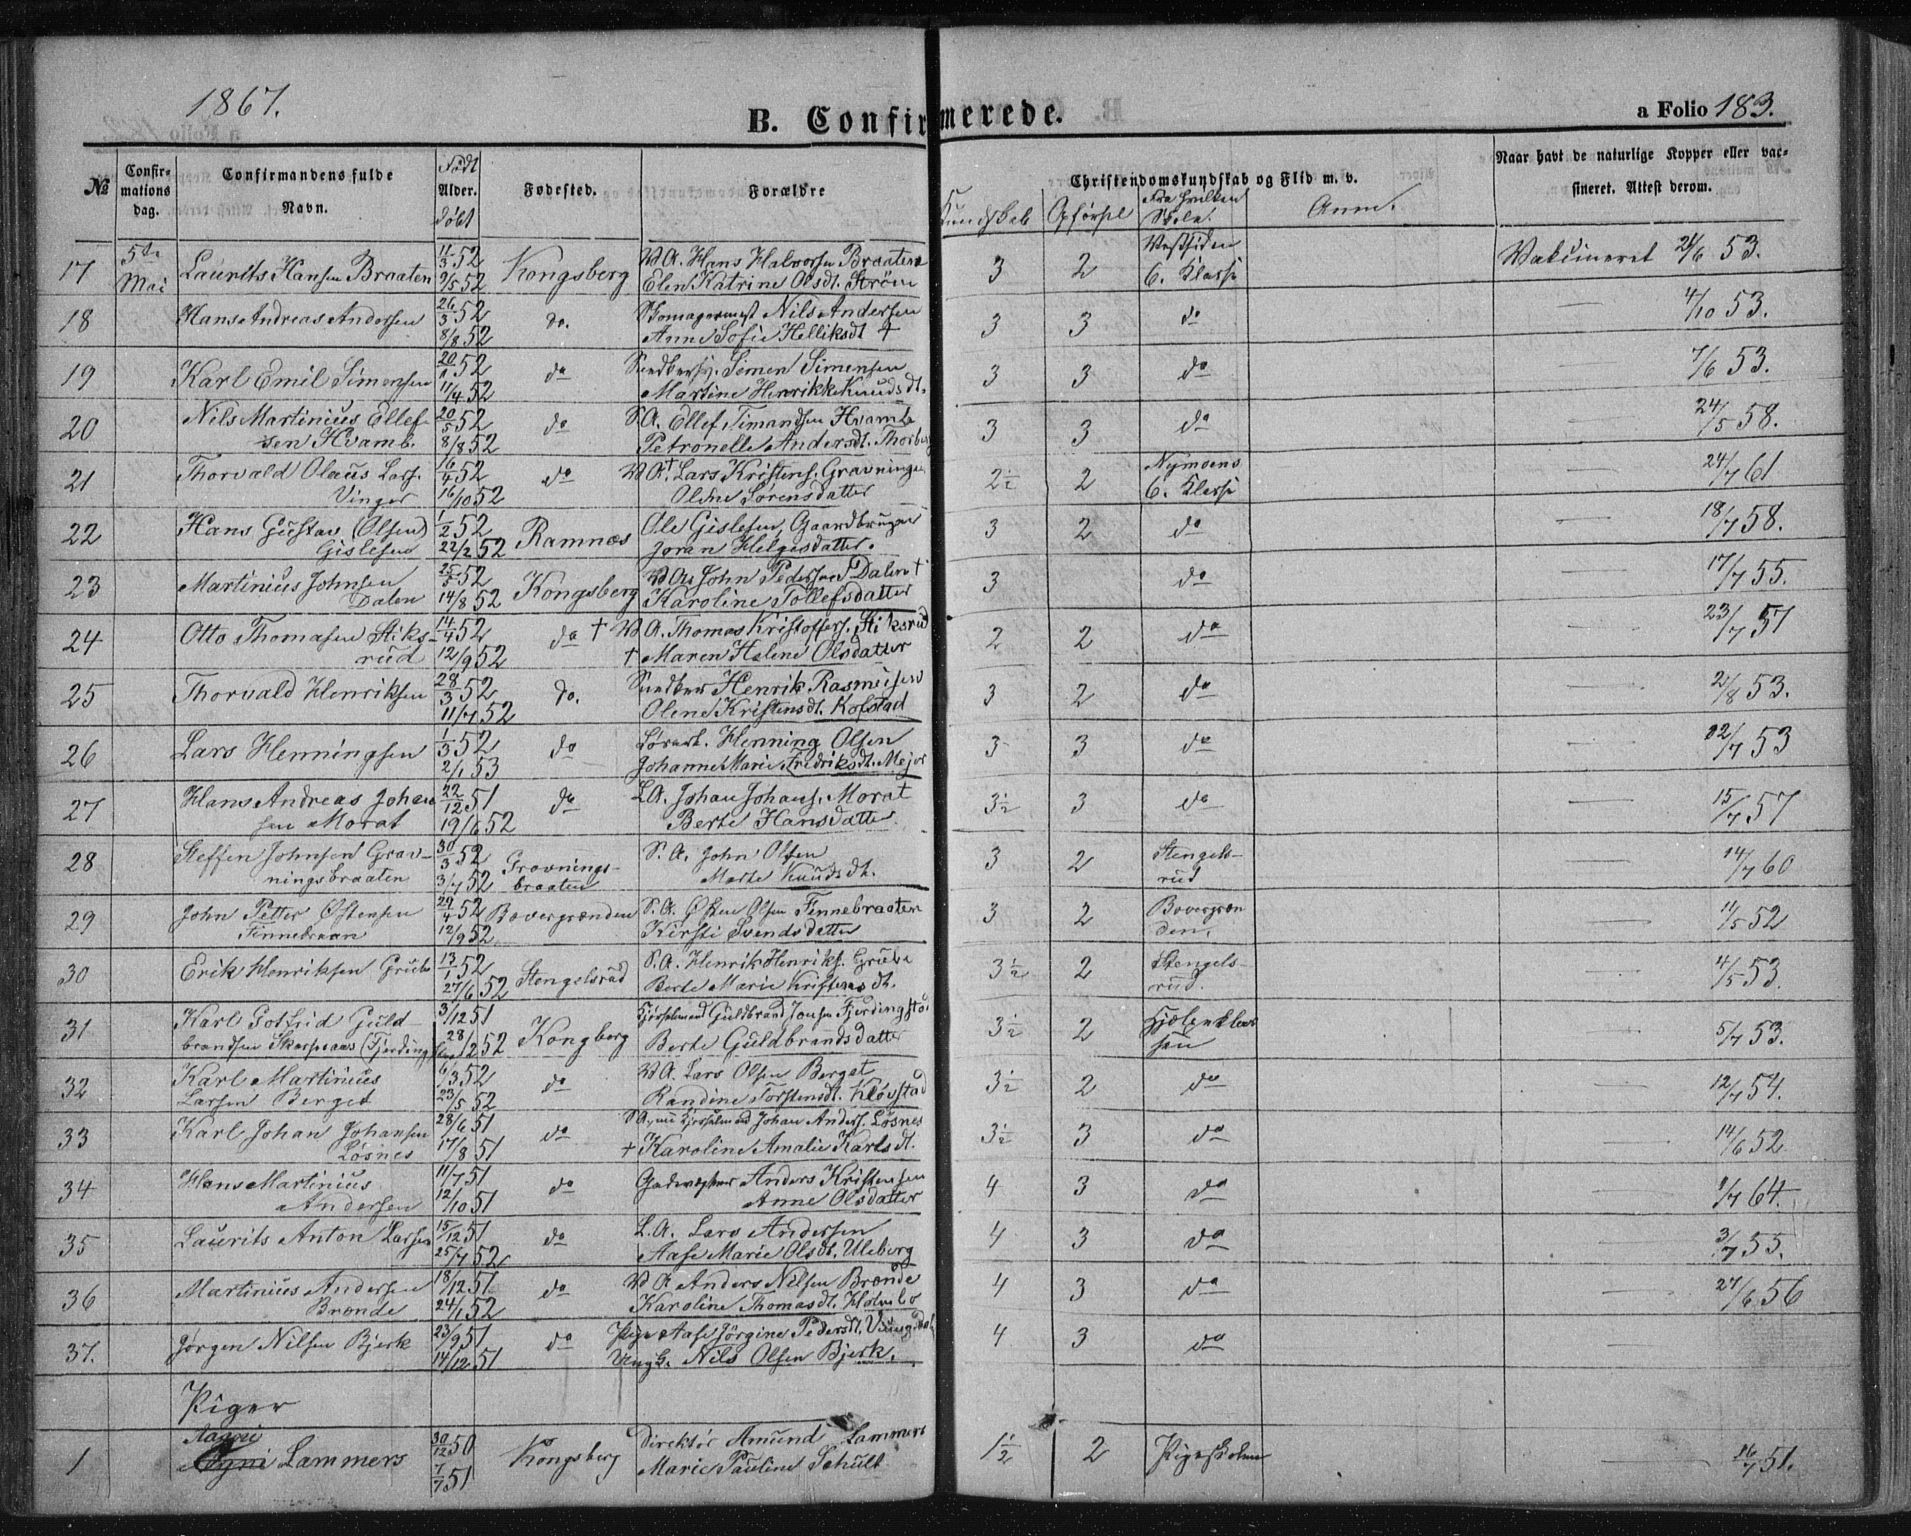 1867.
B. Confirmerede.
a Folio 183.
No
Confirmations dag.
Confirmandens fulde Navn.
Født Alder. døbt
Fødested.
Forældre
Christendomskundskab og Flid m. v.
Kundskab Opførsel Fra hvilken Skole. Anm.
Naar havt de naturlige Kopper eller vaccineret. Attest derom.
17 5te Mai Laurits Hansen Braaten 11/3 52 9/5 52 Kongsberg W A. Hans Halvorsen Braaten Elen Katrine Olsdt. Strøm 3 2 Vestsiden 6. Klasse Vakcineret 21/6 53.
18 Hans Andreas Andersen 26/3 52 8/8 52 do. Skomagermest Nils Andersen Anne Sofie Helliksdt † 3 3 do — 4/10 53.
19 Karl Emil Simensen 20/1 52 11/4 52 do Simen Simensen Martine Henrikke Knudsdt. 3 3 do — 7/6 53.
20 Nils Martinius Ellefsen Hvamb. 20/5 52 8/8 52 do S. A. Ellef Timandsen Hvamb Petronelle Andersdt. 3 3 do — 24/5 58.
21 Thorvald Olaus Lars. Vinger 16/4 52 16/10 52 do W A † Lars Kristens. Gravningen Oline Sørensdatter 2½ 2 Nymoens 6. Klasse — 24/7 61
22 Hans Gustav (Olsen) Gislesen 1/2 52 22/2 52 Ramnæs Ole Gislesen, Gaardbruger Joran Helgesdatter. 3 2 do — 18/7 58.
23 Martinius Johnsen Dalen 25/5 52 14/8 52 Kongsberg John Pedersen Dalen † Karoline Tollefsdatter 3 do — 17/7 55.
24 Otto Thomasen Stiksrud 14/4 52 12/9 52 do † W A. Thomas Kristoffers. Stiksrud † Maren Helene Olsdatter 2 2 do — 23/7 57
25 Thorvald Henriksen 28/3 52 11/7 52 do. Henrik Rasmusen Olene Kristensdt. Kofstad 3 2 do — 2/8 53.
26 Lars Henningsen 1/3 52 2/1 53 do Henning Olsen Johanne Marie Fredriksdt. Mejer 3 3 do — 22/7 53
27 Hans Andreas Johansen Morat 22/12 51 19/6 52 do L A. Johan Johans. Morat Berte Hansdatter 3½ 3 do — 15/7 57
28 Steffen Johnsen Gravningsbraaten 30/3 52 3/7 52 Gravningsbraaten S. A. John Olsen Marte Knudsdt. 3 2 Stengelsrud — 14/7 60
29 John Petter Østensen Finnebraan 29/4 52 12/9 52 Bævergrænden S. A. Østen Olsen Finnebraaten Kirsti Svendsdatter 3 2 Bævergrænden. — 11/5 52
30 Erik Henriksen Grube 13/1 52 27/6 52 Stengelsrud S. A. Henrik Henriks. Grube Berte Marie Kristensdt. 3½ 2 Stengelsrud. — 4/5 53.
31 Karl Gotfrid Guldbrandsen 3/12 51 28/2 52 Kongberg Guldbrand Jonsen Berte Guldbrandsdatter 3½ 2 — 5/7 53.
32 Karl Martinius Larsen Berget 6/3 52 23/5 52 do W A. Lars Olsen Berget Randine Torstensdt. Kløvstad 3½ 2 do — 12/7 54.
33 Karl Johan Johansen Løsnes 28/6 51 17/8 51 do Johan Anders. Løsnes † Karoline Amalie Karlsdt. 3½ 3 do — 14/6 52
34 Hans Martinius Andersen 11/7 51 12/10 51 do Anders Kristensen Anne Olsdatter 4 3 do — 1/7 64.
35 Laurits Anton Larsen 15/12 51 25/7 52 do L. A. Lars Andersen Aase Marie Olsdt. Uleberg 4 3 do — 3/7 55.
36 Martinius Andersen Brænde 18/12 51 24/1 52 do W A Anders Nilsen Brænde Karoline Thomasdt. Holmbo 4 3 do — 27/6 56
37. Jørgen Nilsen Bjerk 23/9 51 14/12 51 do Pige Aase Jørgine Pedersdt. Ungk. Nils Olsen Bjerk. 4 3 do
Piger
1 Aagni Lammers 30/12 50 7/7 51 Kongsberg Direktør Amund Lammers Marie Pauline Schult 1½ 2 Pigeskolen — 16/7 51.